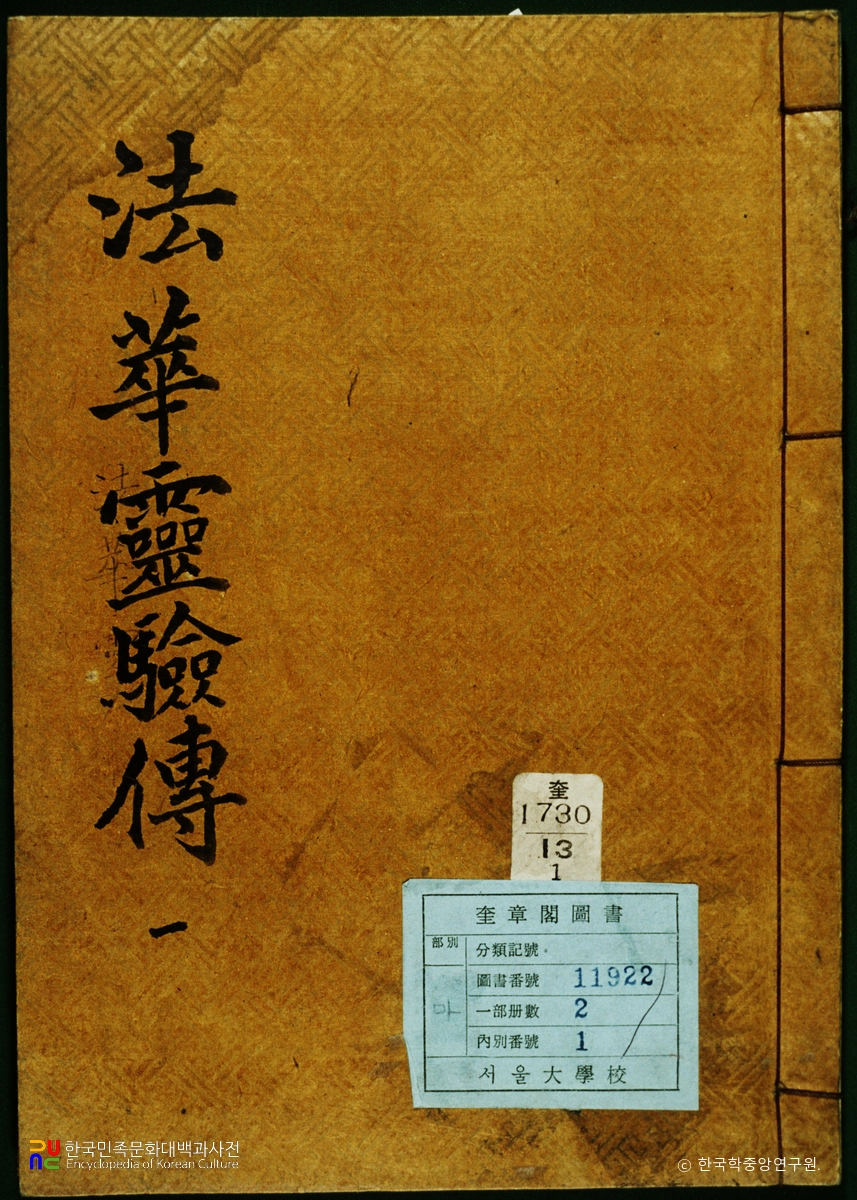 法華靈驗傳 一
法
華
奎
1730
13
1
奎章閣圖書
部別
分類記號
圖書番號 11922
마
一部册數 2
內別番號 1
서울大學校
한국민족문화대백과사전
Encyclopedia of Korean Culture
© 한국학중앙연구원